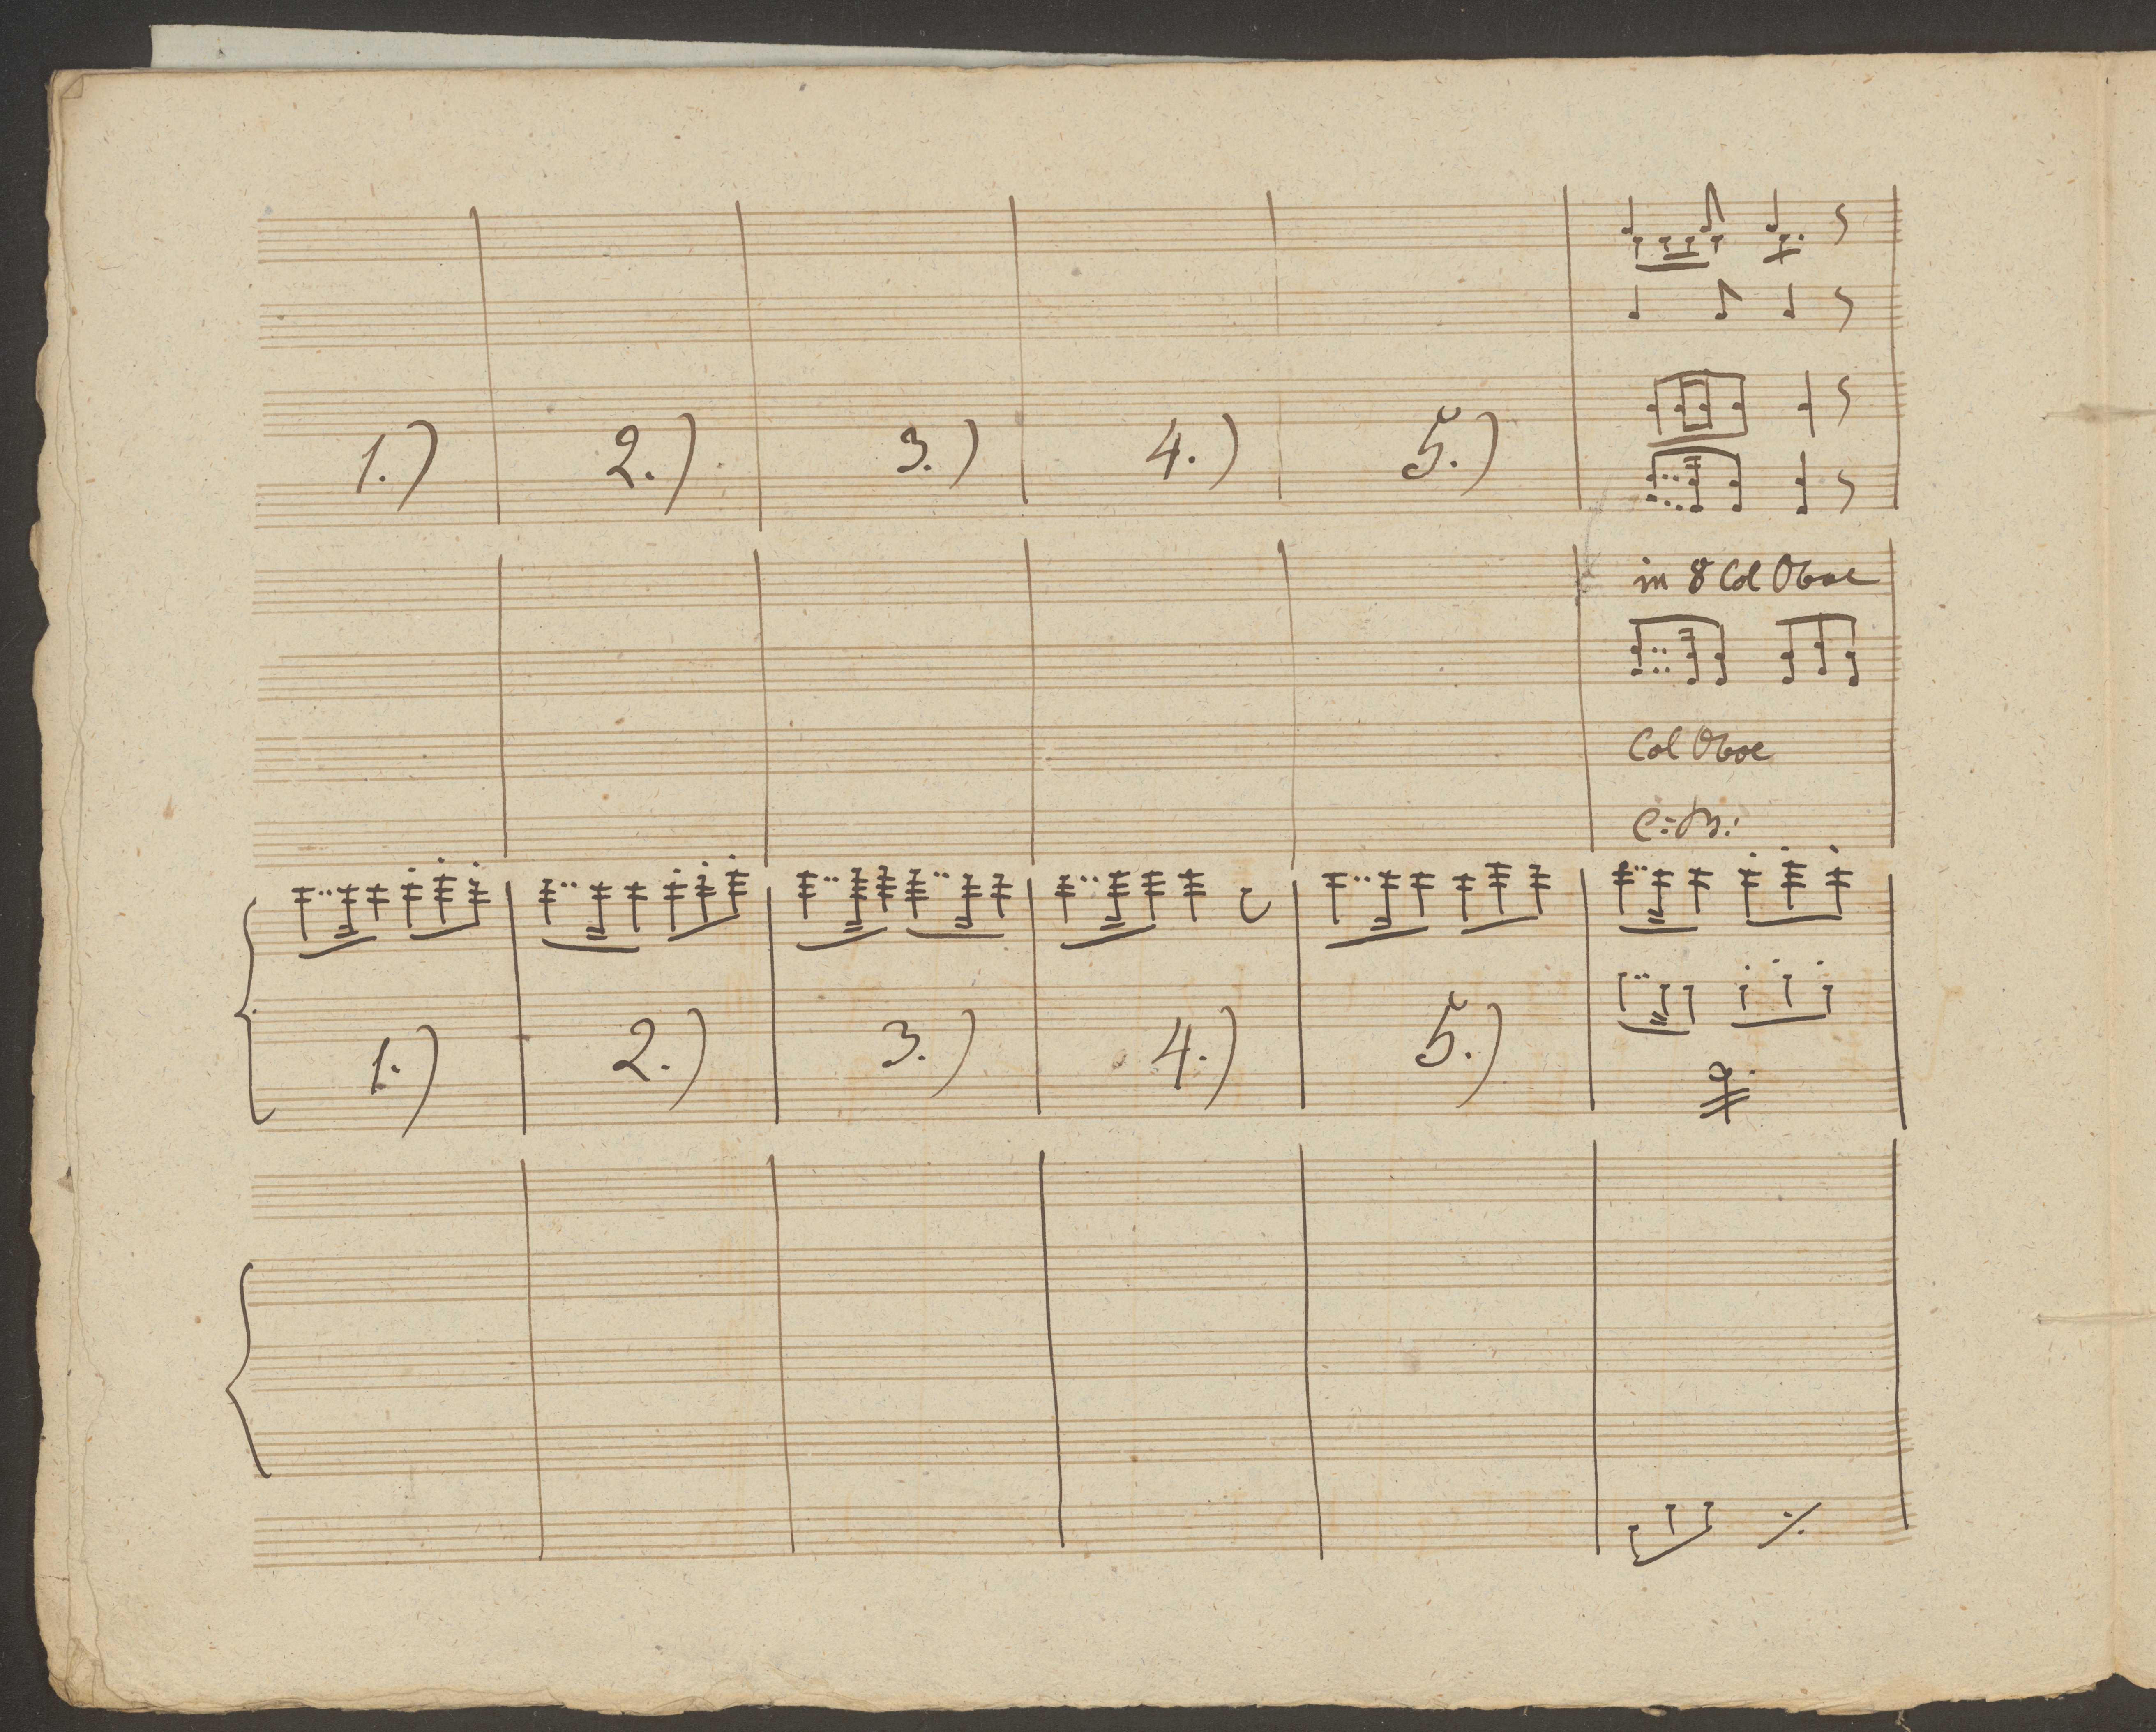 1.) 2.) 3.) 4.) 5.)
in 8 Col Oboe
Col Oboe
C: B:
1.) 2.) 3.) 4.) 5.)